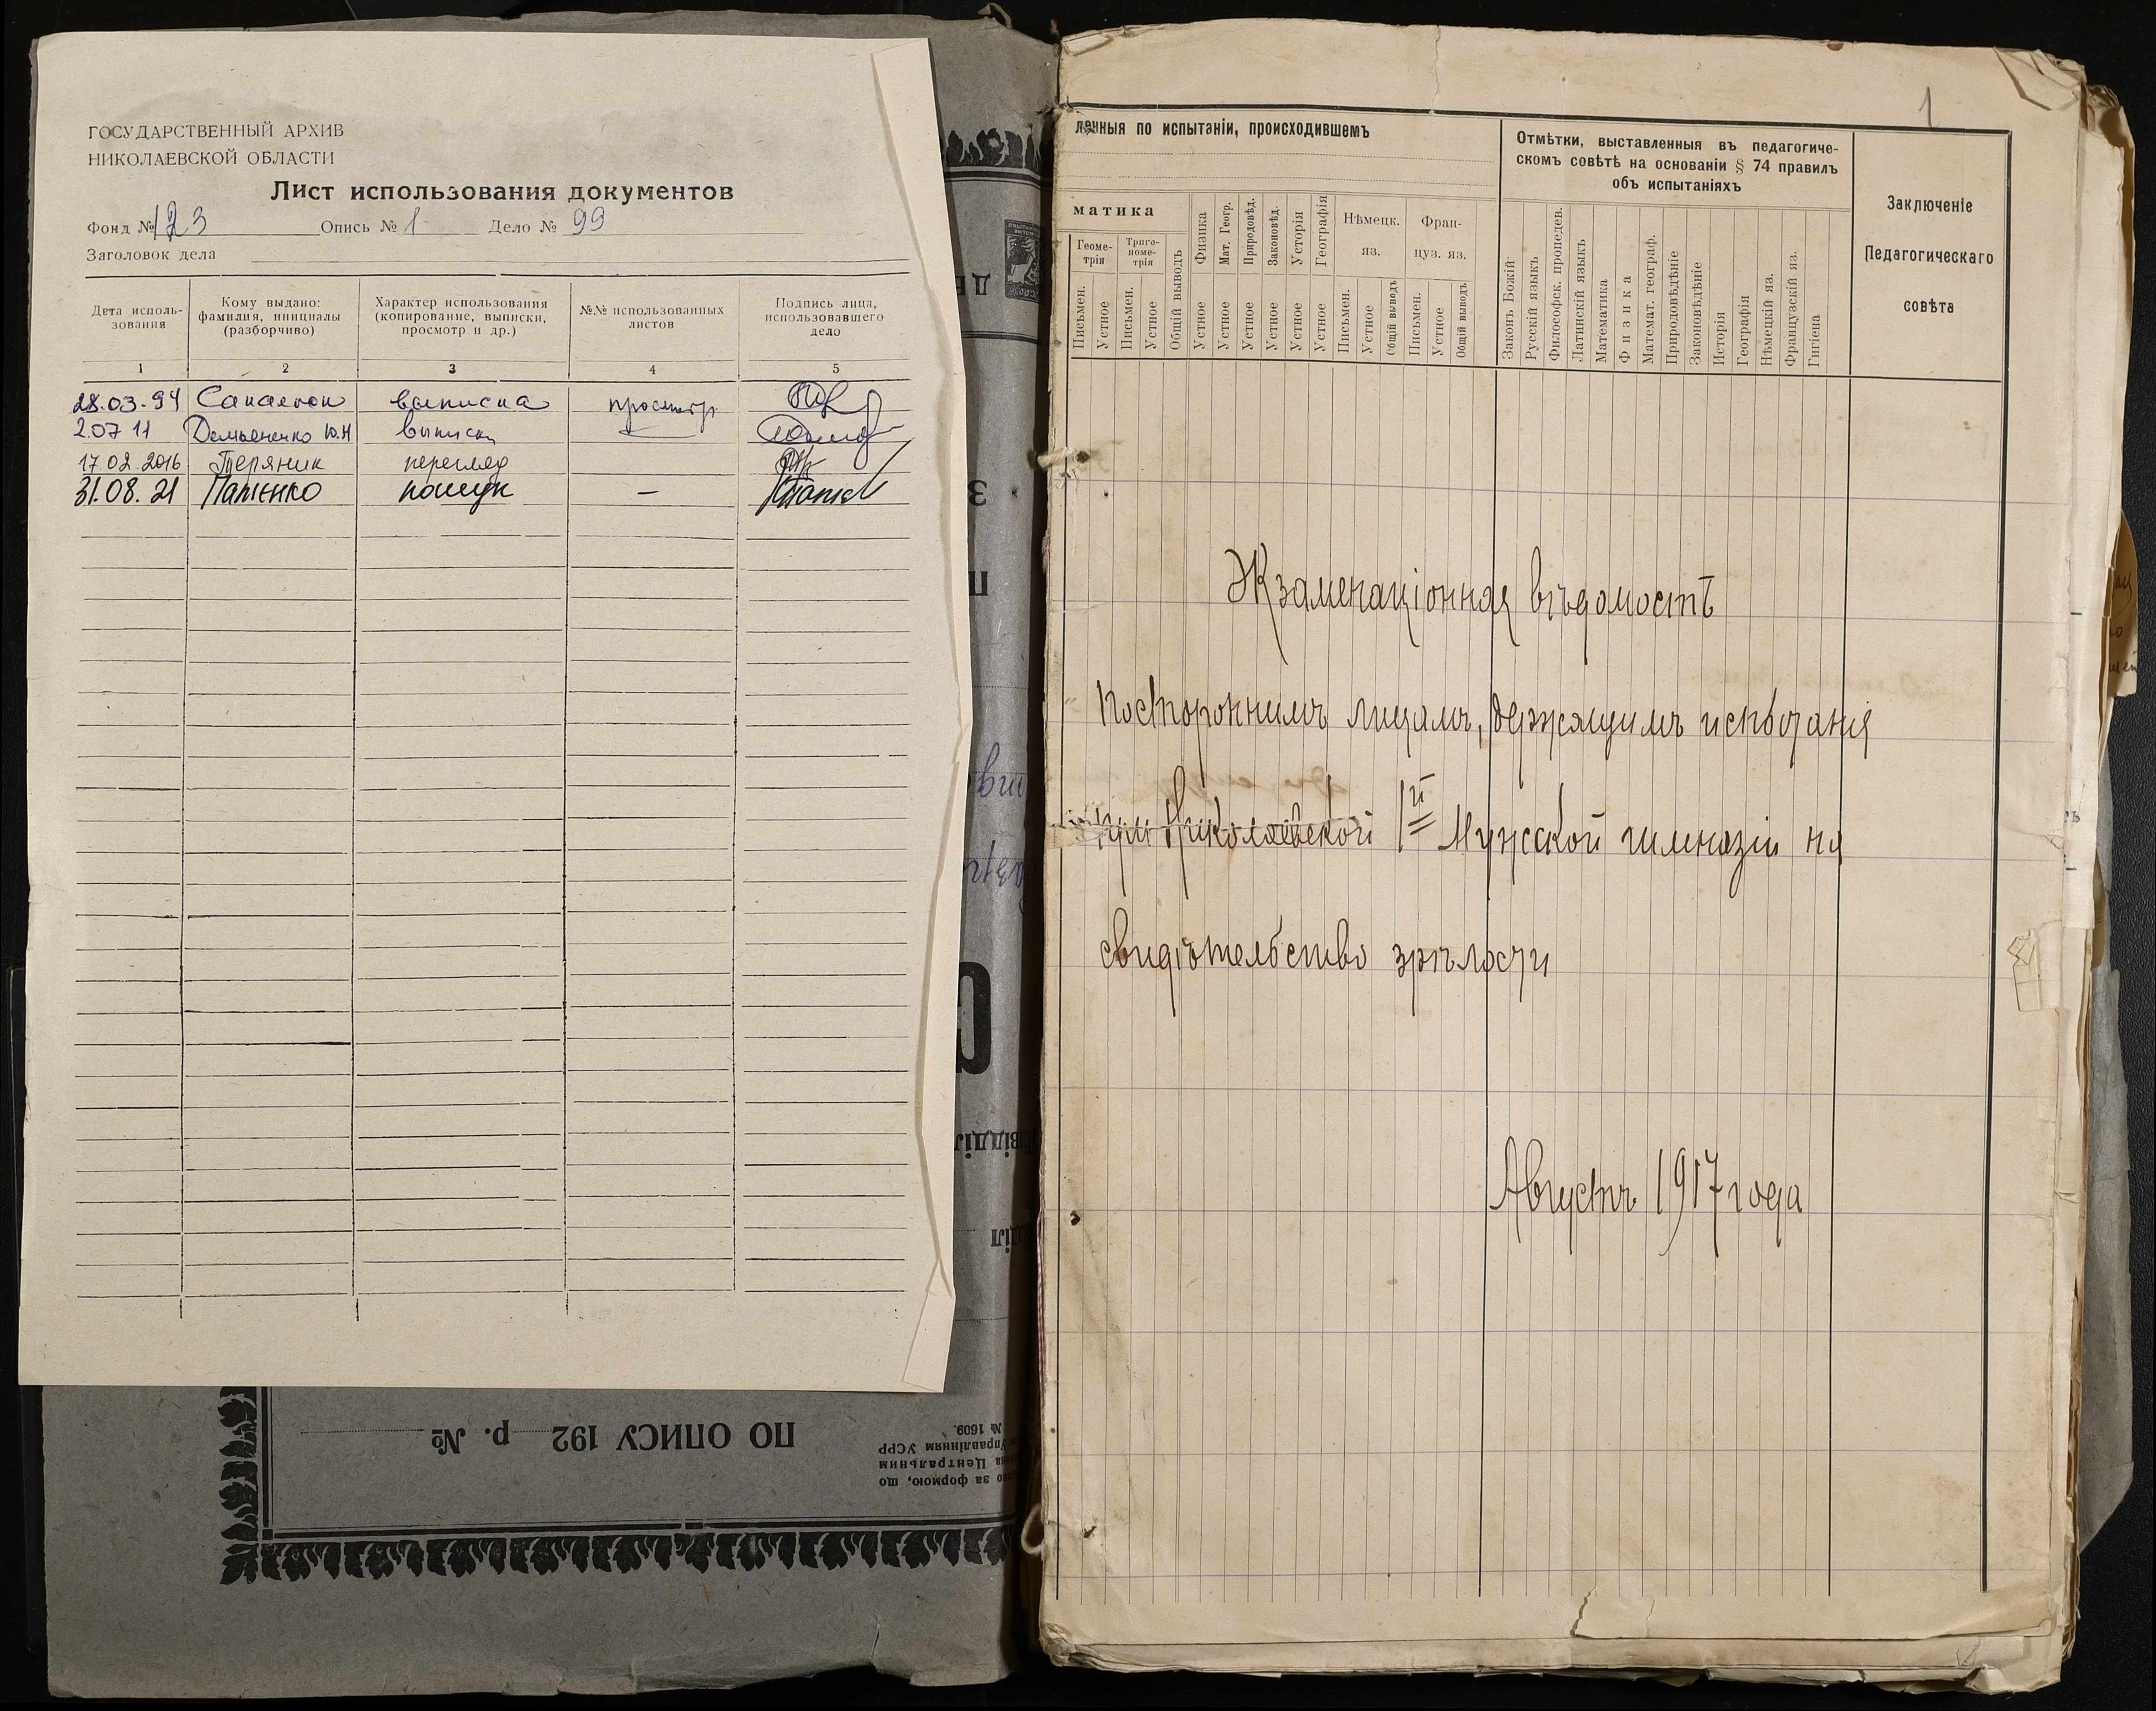 ГОСУДАРСТВЕННЫЙ АРХИВ
НИКОЛАЕВСКОЙ ОБЛАСТИ
Лист использования документов
Фонд № 123 Опись № 1 Дело № 99
Заголовок дела
Дата исполь-
зования
Кому выдано:
фамилия, инициалы
(разборчиво)
Характер использования
(копирование, выписки,
просмотр и др.)
№№ использованных
листов
Подпись лица,
использовавшего
дело
1 2 3 4 5
28.03.94 выписка просмотр
2.07 11 Демьяненко Ю.Н выписки
17.02.2016 Теряник перегляд
31.08.21 пошук —
ПО ОПИСУ 192 р. №
за формою, що
Центральним
Управлінням УСРР
№ 1609.
1
ленныя по испытаніи, происходившемъ
матика
Геоме-
трія
Триго-
номе-
трія
Общій выводъ
Физика
Мат. Геогр.
Природовѣд.
Законовѣд.
Усторія
Географія
Нѣмецк.
яз.
Фран-
цуз. яз.
Письмен. Устное Письмен. Устное Устное Устное Устное Устное Устное Устное Письмен. Устное Общій выводъ Письмен. Устное Общій выводъ
Отмѣтки, выставленныя въ педагогиче-
скомъ совѣтѣ на основаніи § 74 правилъ
объ испытаніяхъ
Законъ Божій
Русскій языкъ
Философск. пропедев.
Латинскій языкъ
Математика
Физика
Математ. географ.
Природовѣдѣніе
Законовѣдѣніе
Исторія
Географія
Нѣмецкій яз.
Французскій яз.
Гигіена
Заключеніе
Педагогическаго
совѣта
Экзаменаціонная вѣдомость
постороннимъ лицамъ, держащимъ испытанія
при Николаевской 1й Мужской гимназіи на
свидѣтельство зрѣлости
Августъ 1917 года